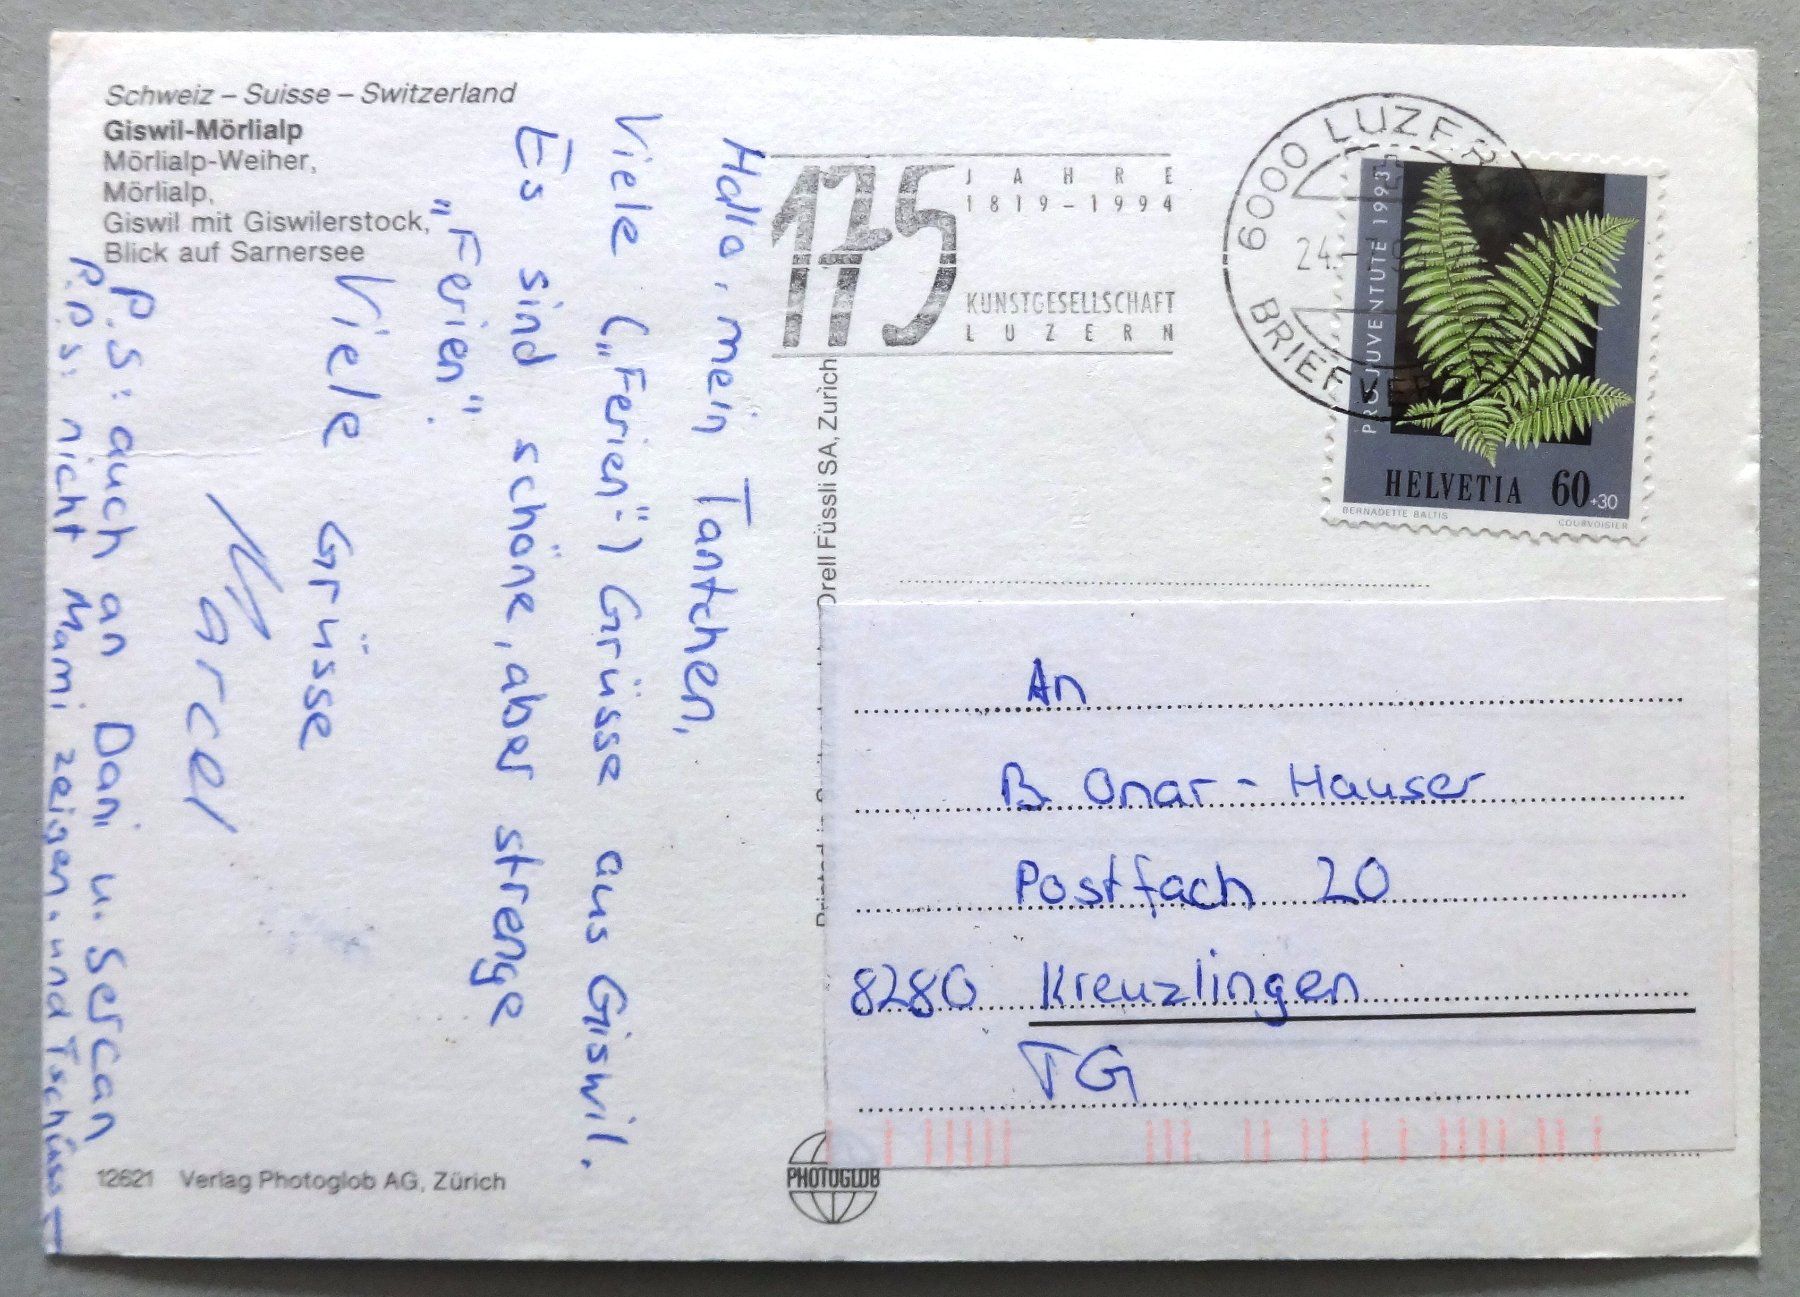 Schweiz – Suisse – Switzerland
Giswil-Mörlialp
Mörlialp-Weiher,
Mörlialp,
Giswil mit Giswilerstock,
Blick auf Sarnersee
Hallo, mein Tantchen,
Viele („Ferien"-) Grüsse aus Giswil.
Es sind schöne, aber strenge
"Ferien".
Viele Grüsse
Marcel
P.S: auch an Dani u. Sercan
P.P.S: nicht Mami zeigen. und Tschüss
12621 Verlag Photoglob AG, Zürich
175
JAHRE
1819–1994
KUNSTGESELLSCHAFT
LUZERN
6000 LUZER
24.
BRIEFVER
PRO JUVENTUTE 1993
HELVETIA 60+30
BERNADETTE BALTIS COURVOISIER
Orell Füssli SA, Zurich
An
B. Onar - Hauser
Postfach 20
8280 Kreuzlingen
TG
PHOTOGLOB